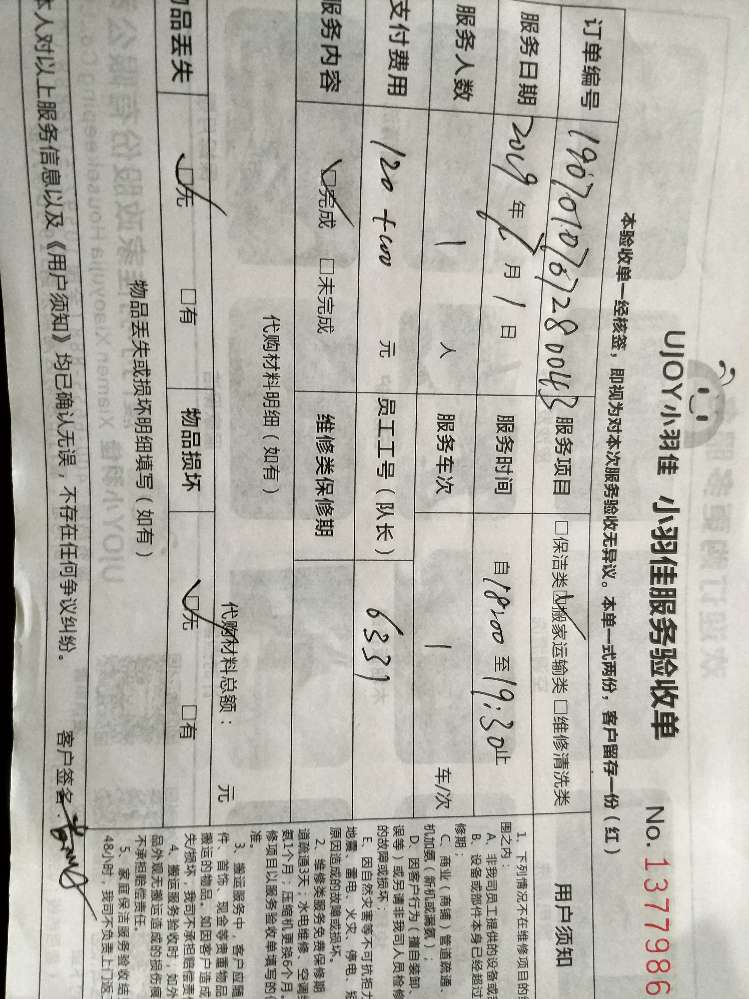 UJOY小羽佳 小羽佳服务验收单 No. 1377986
本验收单一经核签，即视为对本次服务验收无异议。本单一式两份，客户留存一份（红）
订单编号 1907010767280043 服务项目 □保洁类 ☑搬家运输类 □维修清洗类
服务日期 2019年 月1日 服务时间 自18:00至19:30止
服务人数 1 人 服务车次 1 车/次
支付费用 120+ 元 员工工号（队长） 6331
服务内容 ☑完成 □未完成 维修类保修期
代购材料明细（如有） 代购材料总额： 元
物品丢失 ☑无 □有 物品损坏 ☑无 □有
物品丢失或损坏明细填写（如有）
本人对以上服务信息以及《用户须知》均已确认无误，不存在任何争议纠纷。 客户签名：
用户须知
1、下列情况不在维修项目的
围之内：
A、非我司员工提供的设备或
B、设备或部件本身已经超过
修期；
C、商业（商铺）管道疏通、
机加氨（新机或漏氨）；
D、因客户行为（擅自装卸、
误等）或另请非我司人员检修
的故障或损坏；
E、因自然灾害等不可抗拒力
地震、雷电、火灾、停电、短
原因造成的故障或损坏。
2、维修类服务免费保修期
道疏通3天；水电维修、空调
氨1个月；压缩机更换6个月。
修项目以服务验收单填写的
准。
3、搬运服务中，客户应随
件、首饰、现金等贵重物品
搬运的物品。如因客户造成
失/损坏，我司不承担赔偿责
4、搬运服务验收时，如外
品外观无搬运造成的损伤痕
不承担赔偿责任。
5、家庭保洁服务验收结
48小时，我司不负责上门返